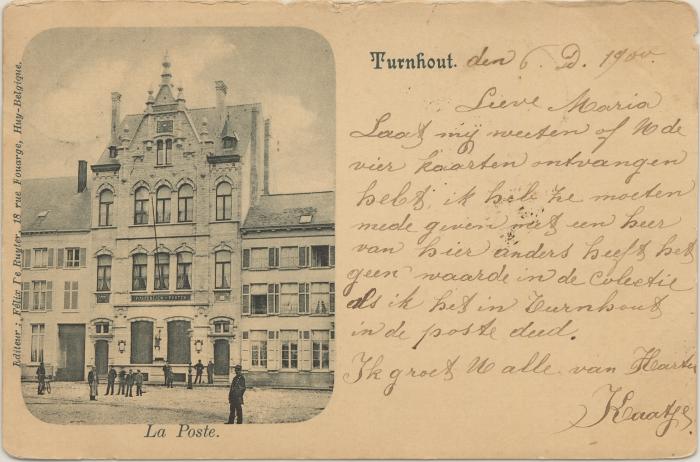 Editeur : Félix De Ruyter, 18 rue Fouarge, Huy-Belgique.
Turnhout. den 6. D. 1900.
Lieve Maria
Laat mij weeten of U de
vier kaarten ontvangen
hebt, ik heb ze moeten
mede geven met een heer
van hier anders heeft het
geen waarde in de Colectie
als ik het in Turnhout
in de poste deed.
Ik groet U alle van Harte
Kaatje
La Poste.